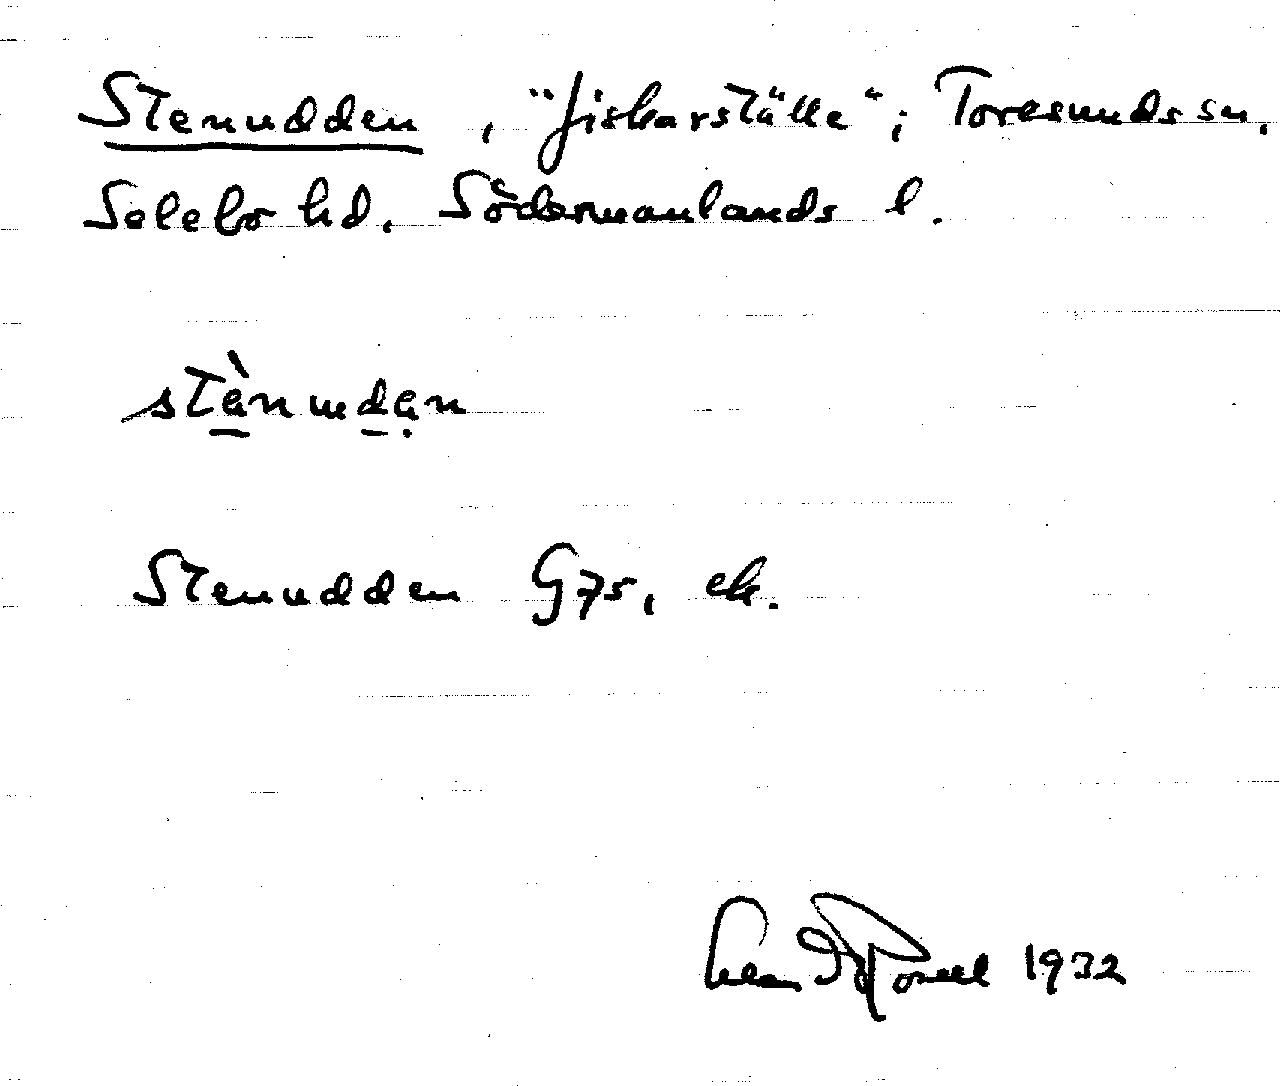 Stenudden, "fiskarställe"; Toresunds sn.
Selebo hd. Södermanlands l.
stènudęn
Stenudden G75, ek.
1932